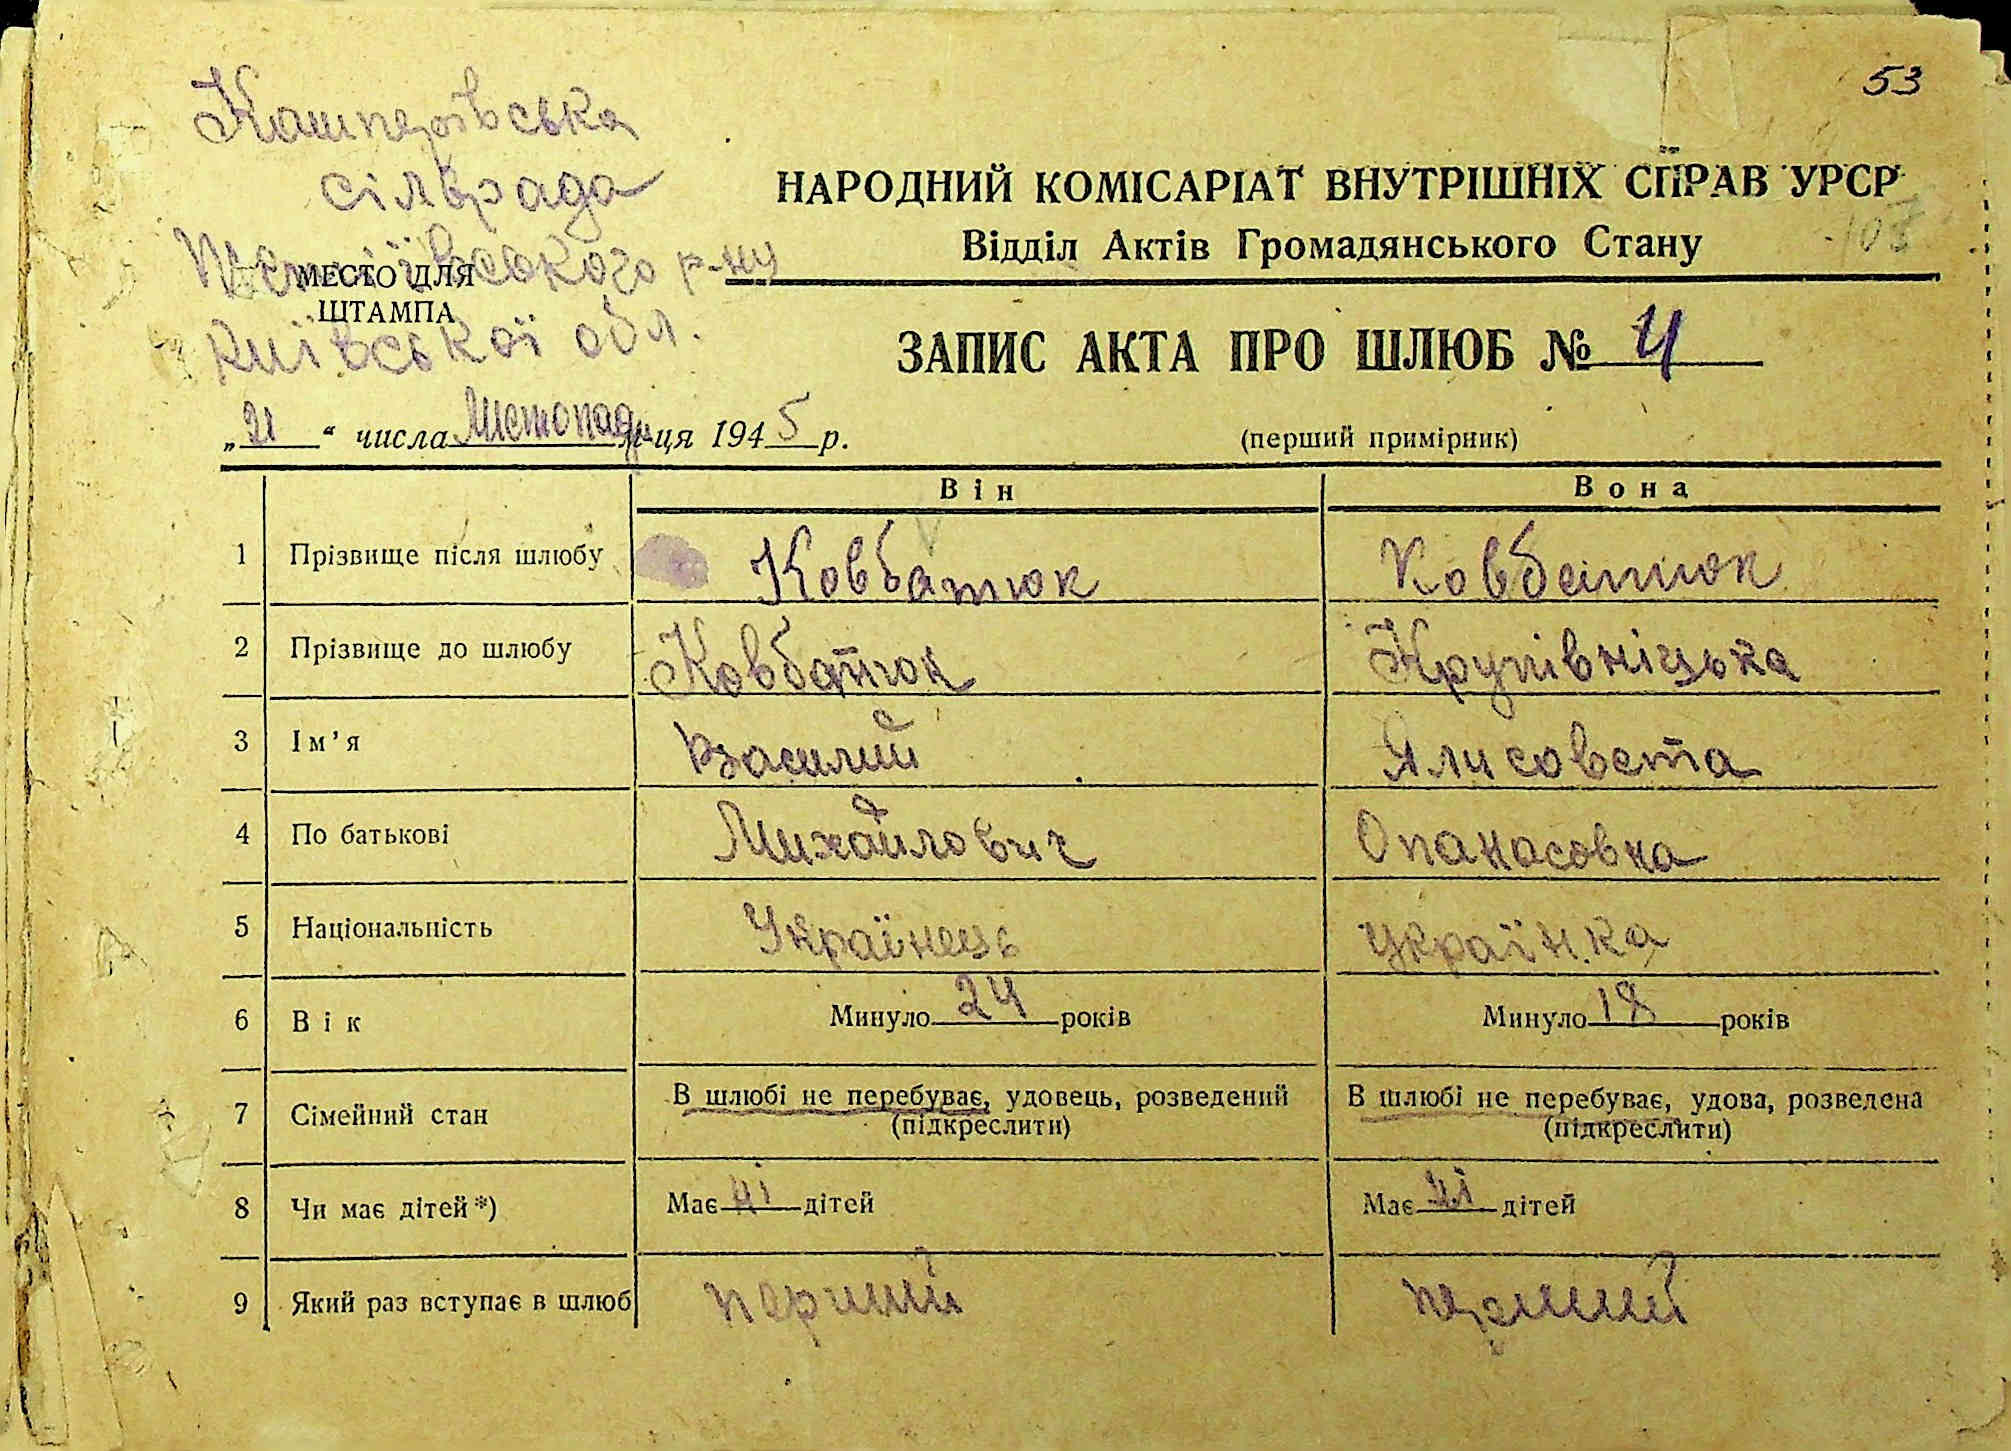 53
Кашперівська
сільрада
Тетіївського р-ну
Київської обл.
МЕСТО ДЛЯ
ШТАМПА
НАРОДНИЙ КОМІСАРІАТ ВНУТРІШНІХ СПРАВ УРСР
103
Відділ Актів Громадянського Стану
ЗАПИС АКТА ПРО ШЛЮБ № 4
„21“ числа Листопад м-ця 1945 р.
(перший примірник)
Він Вона
1 Прізвище після шлюбу Ковбатюк Ковбатюк
2 Прізвище до шлюбу Ковбатюк Крупівніцька
3 Ім'я Василий Ялисовета
4 По батькові Михайлович Опанасовна
5 Національність Українець українка
6 Вік Минуло 24 років Минуло 18 років
7 Сімейний стан В шлюбі не перебуває, удовець, розведений В шлюбі не перебуває, удова, розведена
(підкреслити) (підкреслити)
8 Чи має дітей *) Має ні дітей Має ні дітей
9 Який раз вступає в шлюб перший перший